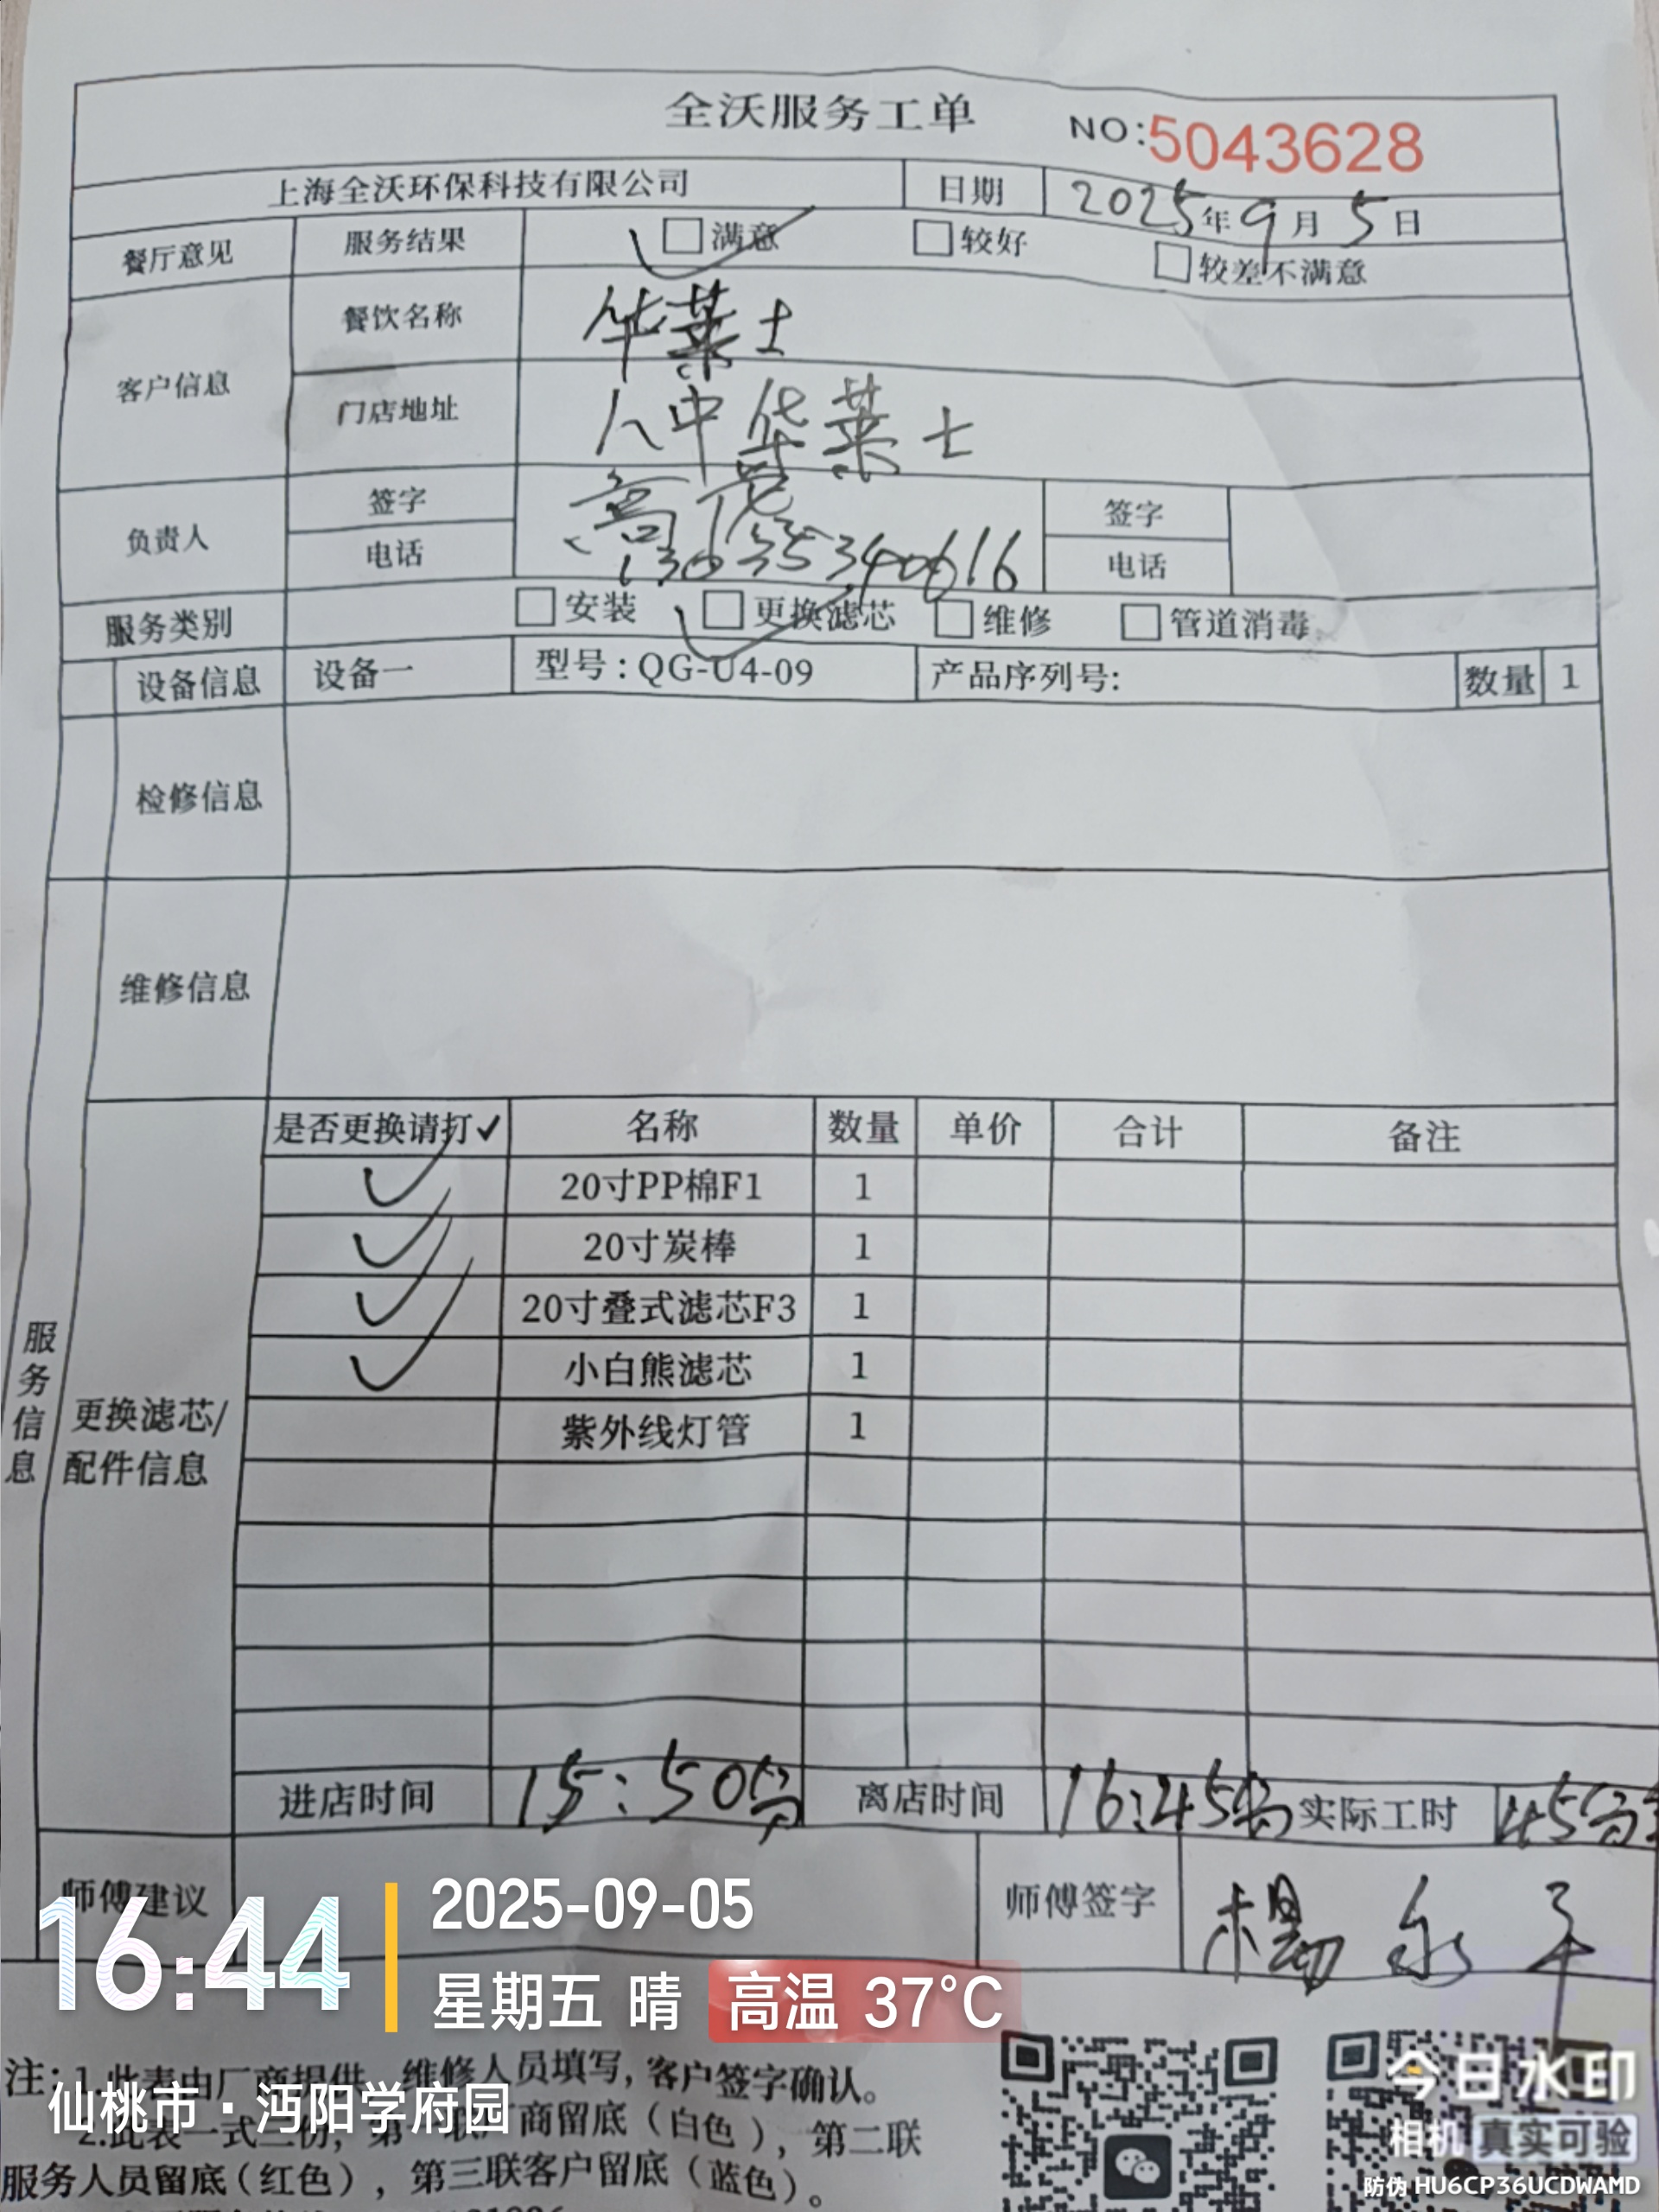 全沃服务工单 NO:5043628
上海全沃环保科技有限公司 日期 2025年9月5日
餐厅意见 服务结果 满意 较好 较差不满意
客户信息 餐饮名称 华莱士
门店地址 八中华莱士
负责人 签字 签字
电话 电话
服务类别 安装 更换滤芯 维修 管道消毒
设备信息 设备一 型号:QG-U4-09 产品序列号: 数量 1
检修信息
维修信息
服务信息
更换滤芯/配件信息
是否更换请打✓ 名称 数量 单价 合计 备注
✓ 20寸PP棉F1 1
✓ 20寸炭棒 1
✓ 20寸叠式滤芯F3 1
✓ 小白熊滤芯 1
紫外线灯管 1
进店时间 15:50分 离店时间 16:45分 实际工时 45分
师傅建议 师傅签字 杨永平
16:44
2025-09-05
星期五 晴 高温 37°C
注:1.此表由厂商提供,维修人员填写,客户签字确认。
仙桃市·沔阳学府园
2.此表一式三份,第一联厂商留底(白色),第二联
服务人员留底(红色),第三联客户留底(蓝色)。
今日水印
相机 真实可验
防伪 HU6CP36UCDWAMD